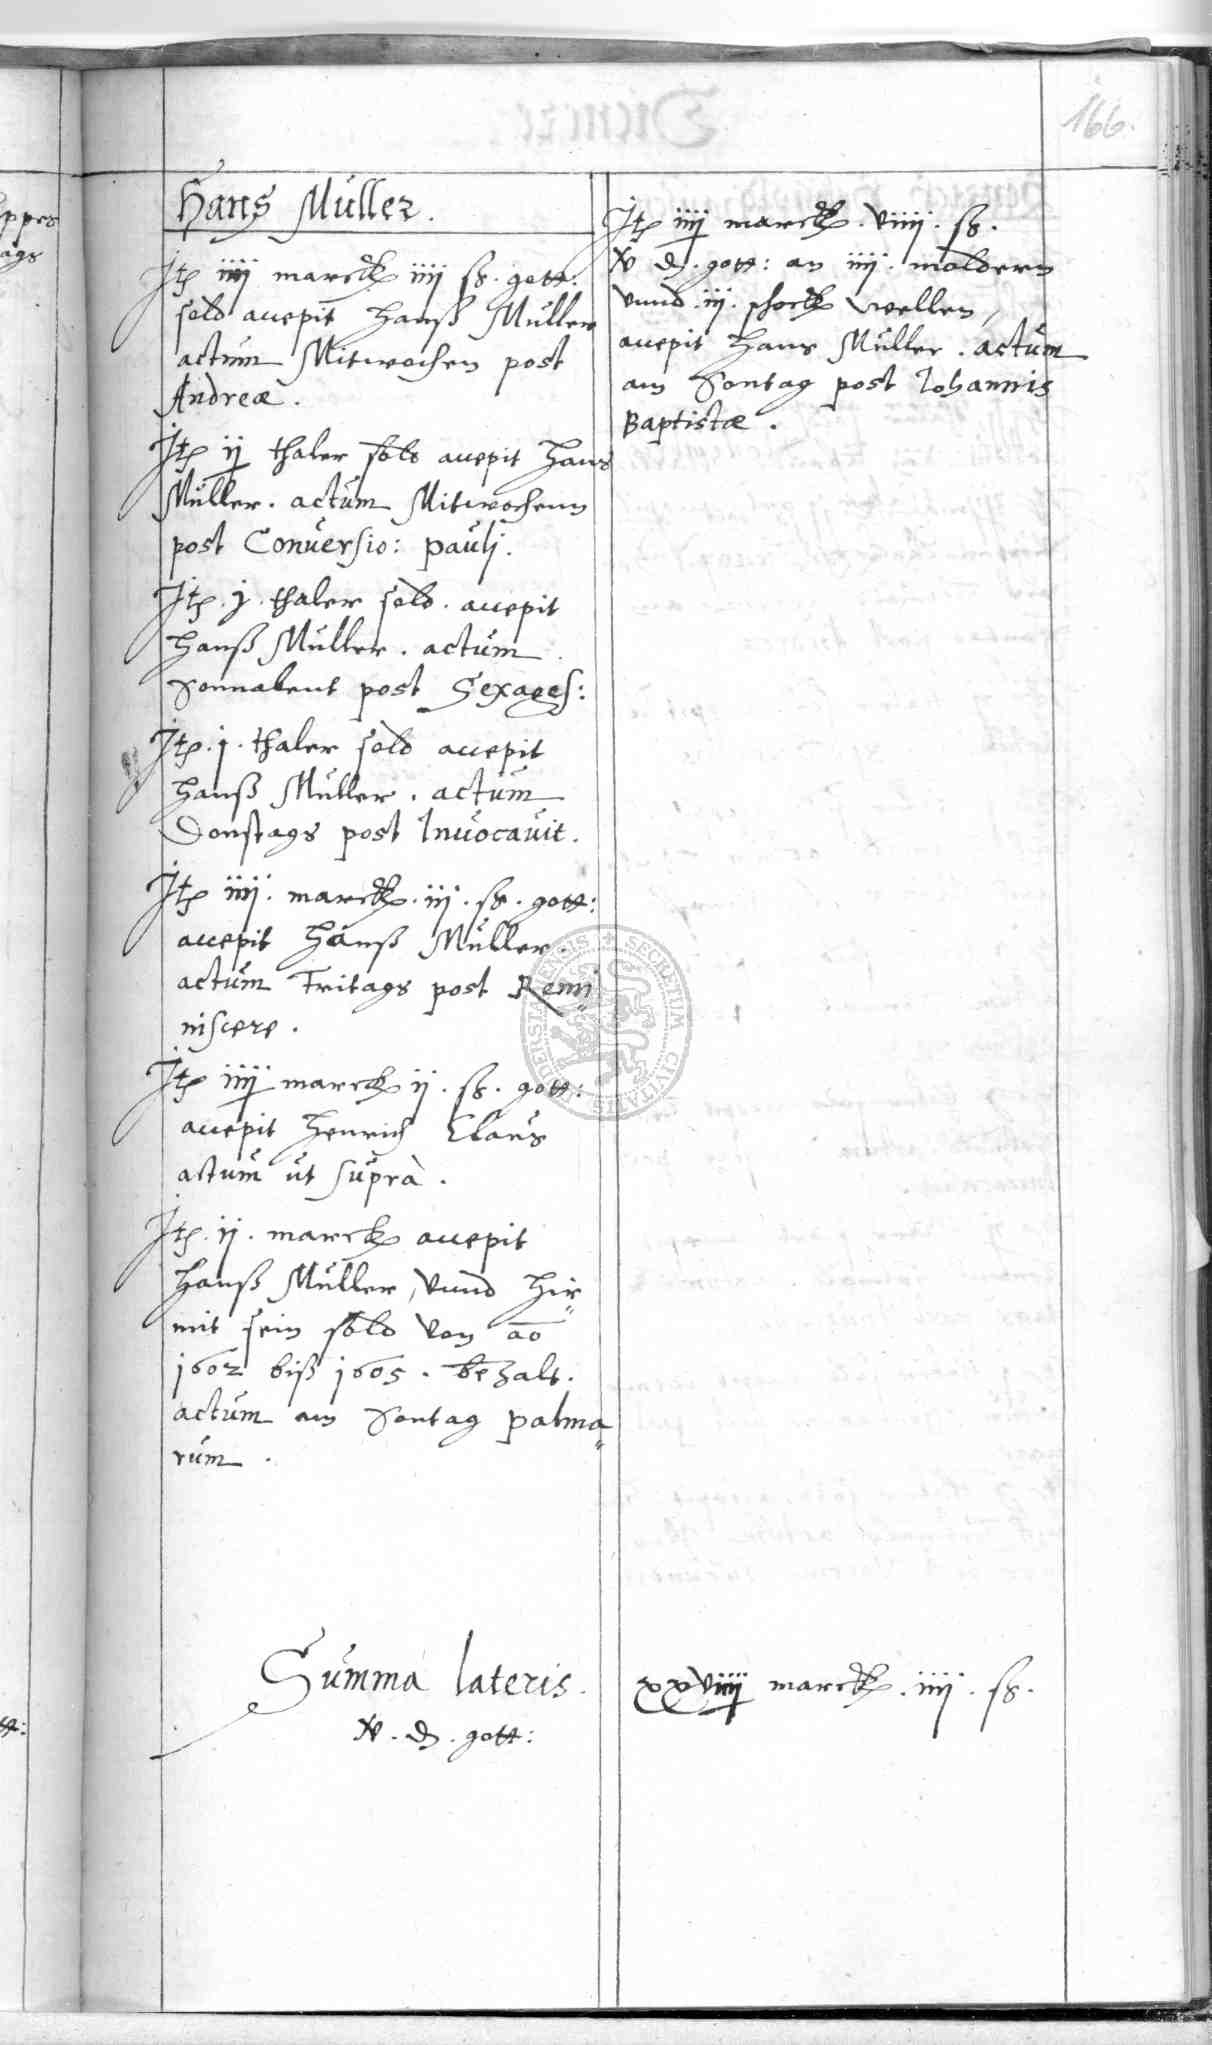 166.
Hans Müller.
Jtē iiij marck iiij ß. gott:
sold accepit Hanß Müller
actum Mitwochen post
Andreæ.
Jtē ij thaler solds accepit Hans
Müller. actum Mitwochenn
post Conversio: Paulj.
Jtē. j. thaler sold. accepit
Hanß Müller. actum
Sonnabent post Sexages:
Jtē. j. thaler sold accepit
Hanß Müller. actum
Donstags post Invocavit.
Jtē iiij. marck. iij. ß. gott:
accepit Hanß Müller.
actum Fritags post Remi
niscere.
Jtē iiij marck ij. ß. gott:
accepit Henrich Claus
actum ut suprà.
Jtē. ij. marck accepit
Hanß Müller, vnnd hir
mit sein sold von aō
1602 biß 1605. bezalt.
actum am Sontag palma
rum.
Jtē iiij marck. viiij. ß.
x ₰. gott: an iiij. moldern
vnnd. iij. schock wellen,
accepit Hans Müller. actum
am Sontag post Iohannis
Baptistæ.
Summa lateris. xxviiij marck. iiij. ß.
x. ₰. gott:
SECRETUM CIVITATIS DUDERSTADENSIS